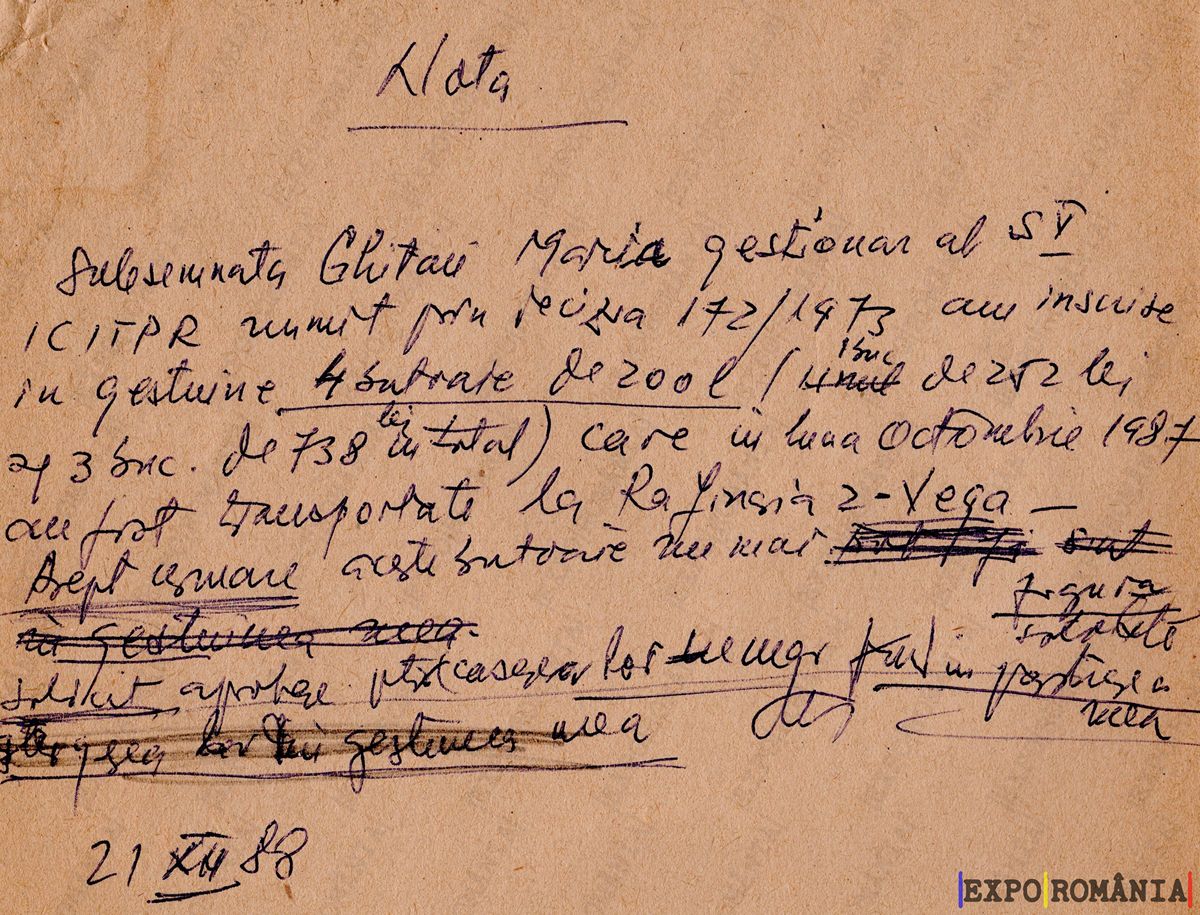 Nota
Subsemnata Ghitau Maria gestionar al S V
ICITPR numit prin decizia 172/1973 am inscrise
in gestiune 4 butoaie de 200 l / 1 buc de 252 lei
și 3 buc. de 738 lei in total) care in luna Octombrie 1987
au fost transportate la Rafinăria 2-Vega —
Drept urmare aceste butoaie nu mai sunt
figura
in gestiunea mea.
solicit aprobare ptr casarea lor nemai fiind in păstrarea
mea
lor in gestiunea mea
21 XII 88
EXPO ROMÂNIA